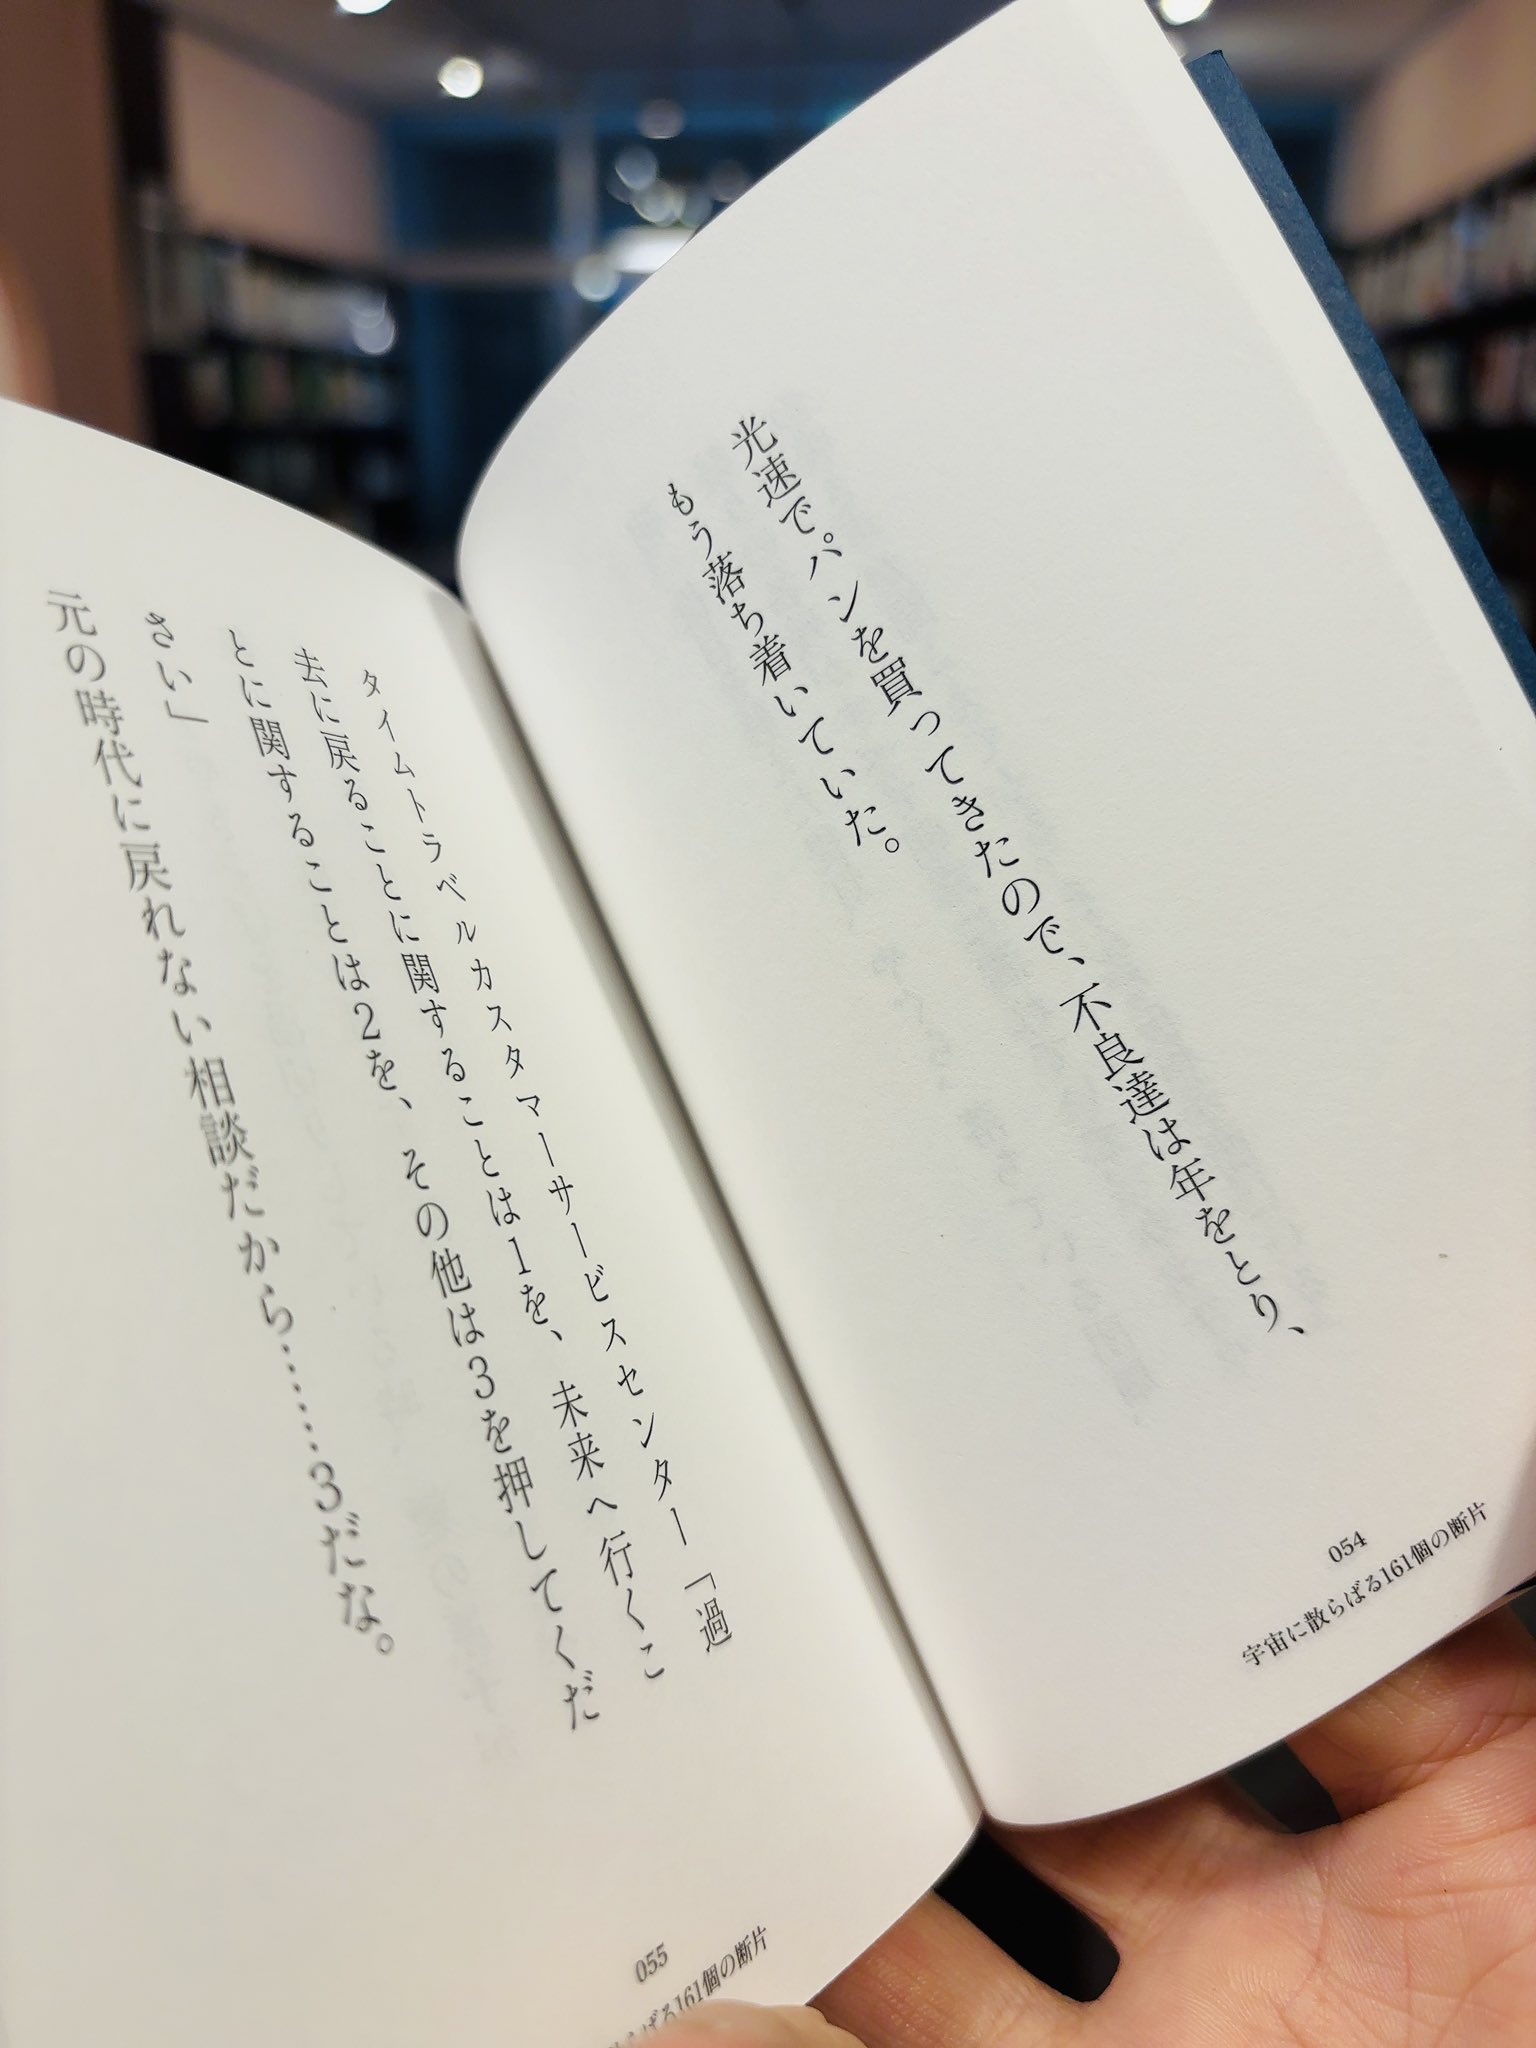 光速でパンを買ってきたので、不良達は年をとり、
もう落ち着いていた。
054
宇宙に散らばる161個の断片
タイムトラベルカスタマーサービスセンター「過
去に戻ることに関することは1を、未来へ行くこ
とに関することは2を、その他は3を押してくだ
さい」
元の時代に戻れない相談だから……3だな。
055
らばる161個の断片